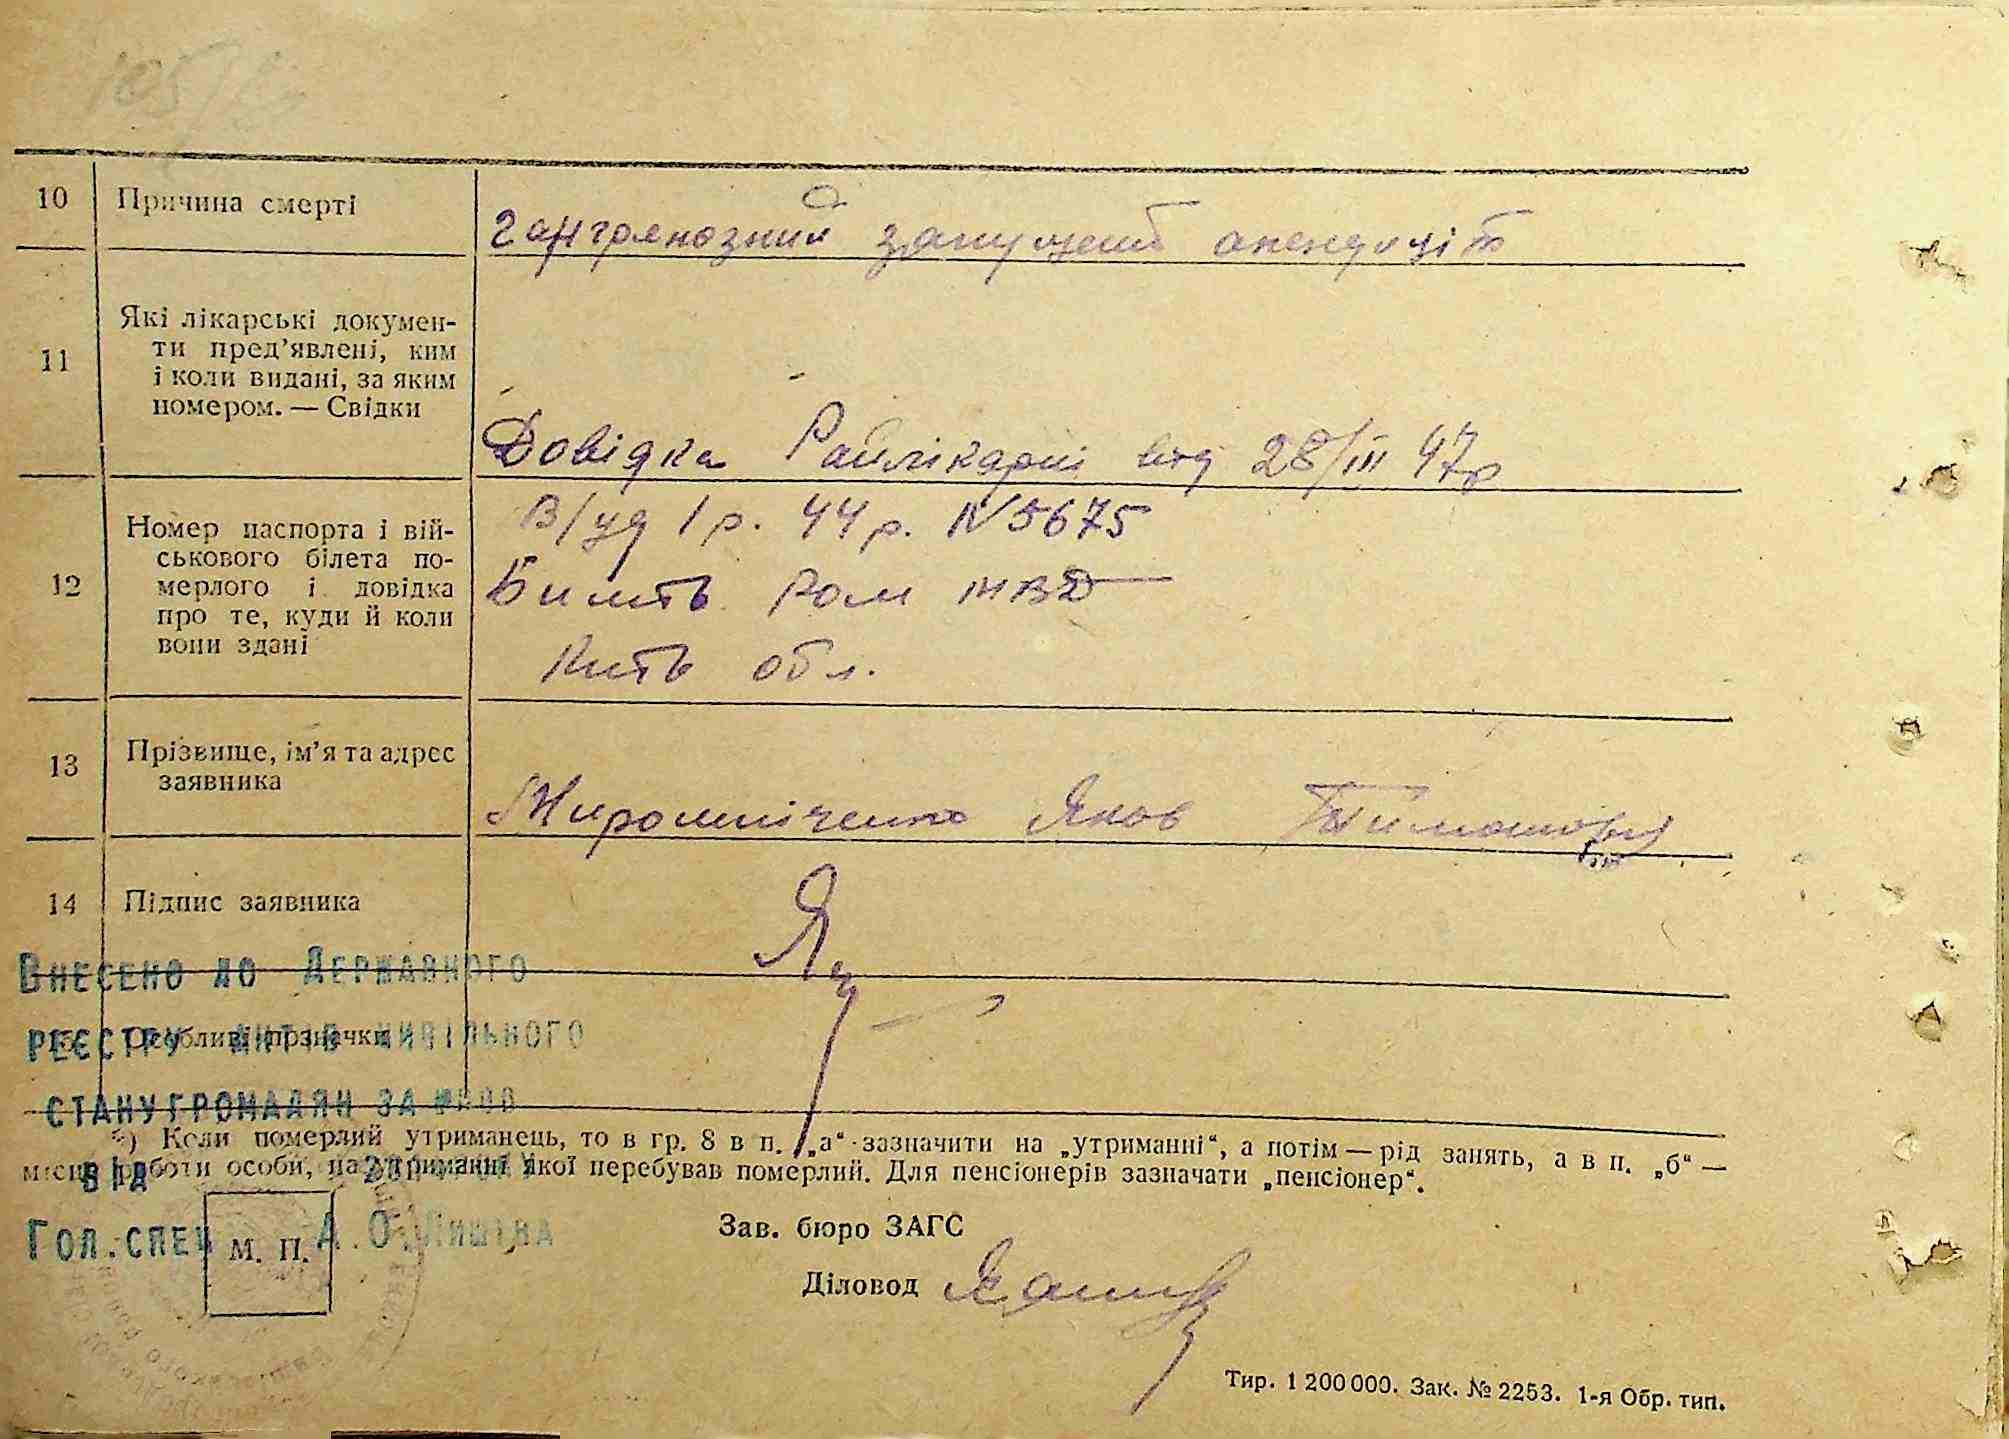 10 Причина смерті
гангренозний запущений апендицит
11 Які лікарські докумен-
ти пред’явлені, ким
і коли видані, за яким
номером. — Свідки
Довідка Райлікарні від 28/III 47р
12 Номер паспорта і вій-
ськового білета по-
мерлого і довідка
про те, куди й коли
вони здані
В/уд 1 р. 44 р. N 5675
НВД
обл.
13 Прізвище, ім’я та адрес
заявника
Яков
14 Підпис заявника
Особливі позначки
Внесено до Державного
реєстру актів цивільного
стану громадян за №
від
Гол. спец А.О.
*) Коли померлий утриманець, то в гр. 8 в п. „а“ зазначити на „утриманні“, а потім — рід занять, а в п. „б“ —
місце роботи особи, на утриманні якої перебував померлий. Для пенсіонерів зазначати „пенсіонер“.
М. П.
Зав. бюро ЗАГС
Діловод
Тир. 1 200 000. Зак. № 2253. 1-я Обр. тип.